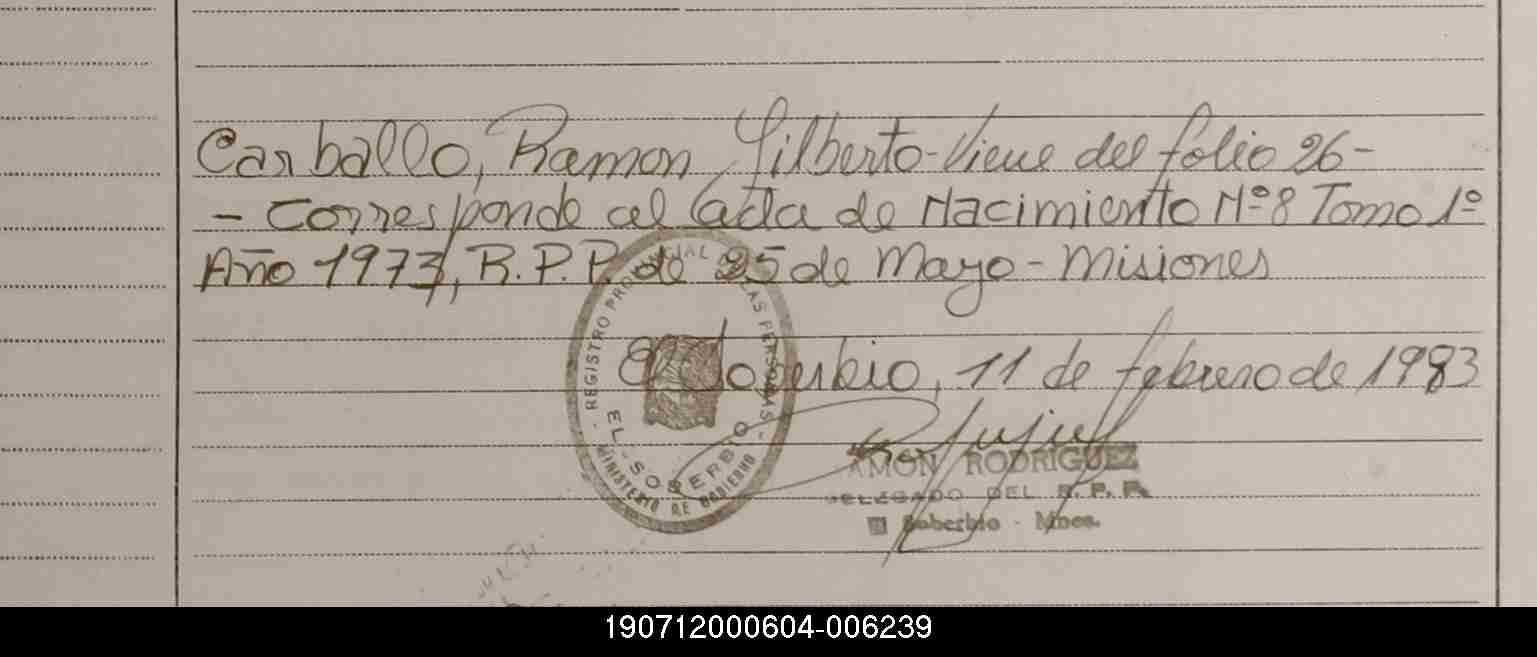 Carballo, Ramon Gilberto - Viene del folio 26 -
- Corresponde al acta de Nacimiento Nº 8 Tomo 1º
Año 1973, R.P.P. de 25 de Mayo - Misiones
REGISTRO PROVINCIAL DE LAS PERSONAS
EL SOBERBIO
MINISTERIO DE GOBIERNO
El Soberbio, 11 de febrero de 1983
RAMON RODRIGUEZ
DELEGADO DEL R. P. P.
El Soberbio - Mnes.
190712000604-006239